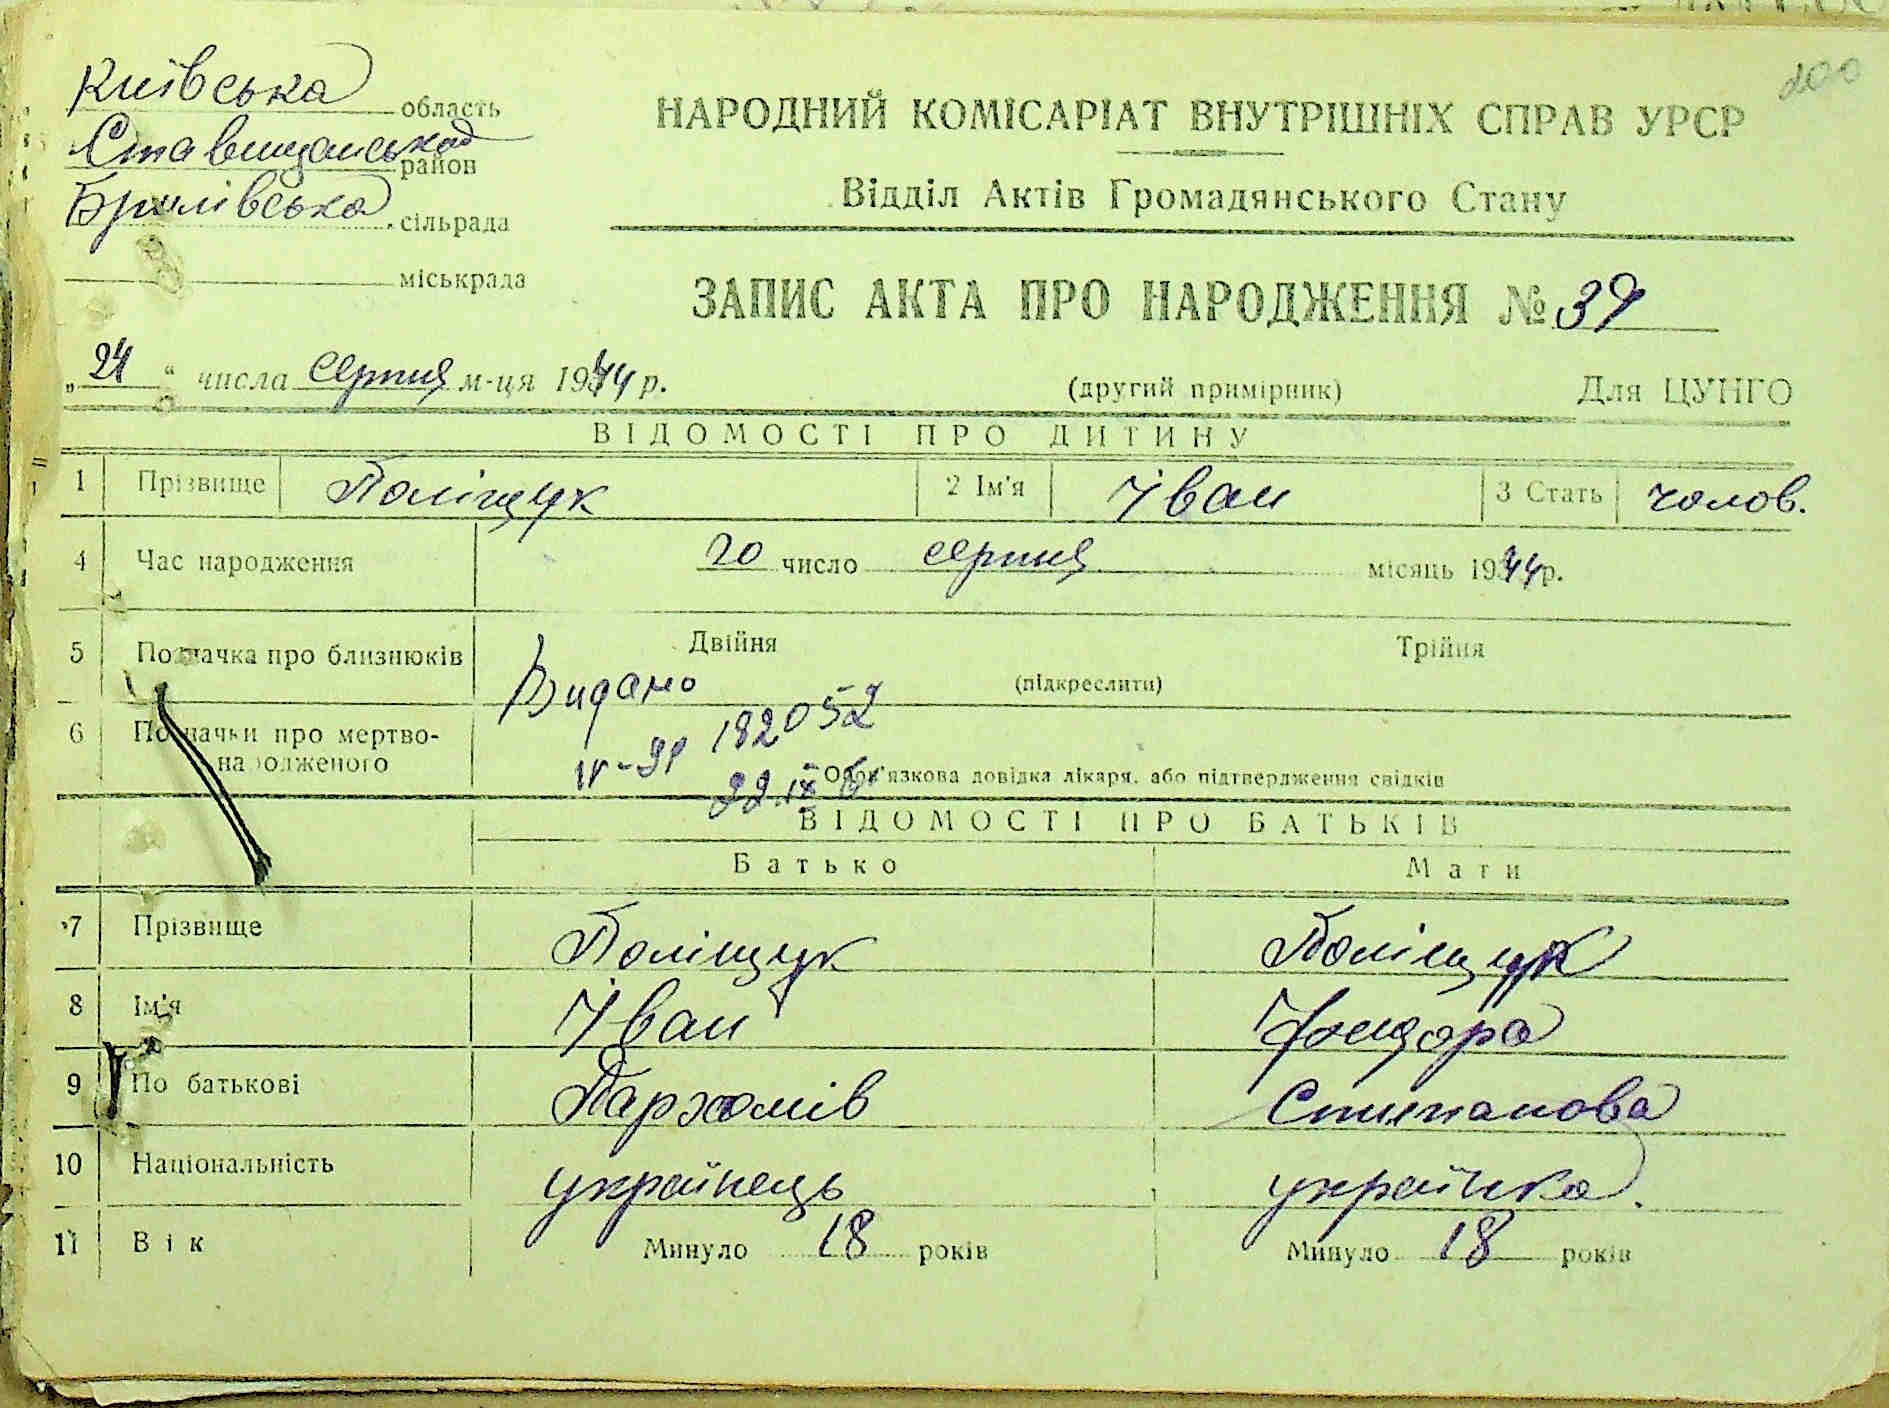 200
Київська область
Ставищанська район
Брилівська сільрада
міськрада
НАРОДНИЙ КОМІСАРІАТ ВНУТРІШНІХ СПРАВ УРСР
Відділ Актів Громадянського Стану
ЗАПИС АКТА ПРО НАРОДЖЕННЯ № 39
„24“ числа серпня м-ця 1944 р.
(другий примірник)
Для ЦУНГО
ВІДОМОСТІ ПРО ДИТИНУ
1 Прізвище Поліщук 2 Ім'я Іван 3 Стать чолов.
4 Час народження 20 число серпня місяць 1944 р.
5 Позначка про близнюків Двійня Трійня
(підкреслити)
Видано
6 Позначки про мертвонародженого
182052
22.ІХ
Обов'язкова довідка лікаря, або підтвердження свідків
ВІДОМОСТІ ПРО БАТЬКІВ
Батько Мати
7 Прізвище Поліщук Поліщук
8 Ім'я Іван
9 По батькові Пархомів Степанова
10 Національність українець українка.
11 Вік Минуло 18 років Минуло 18 років